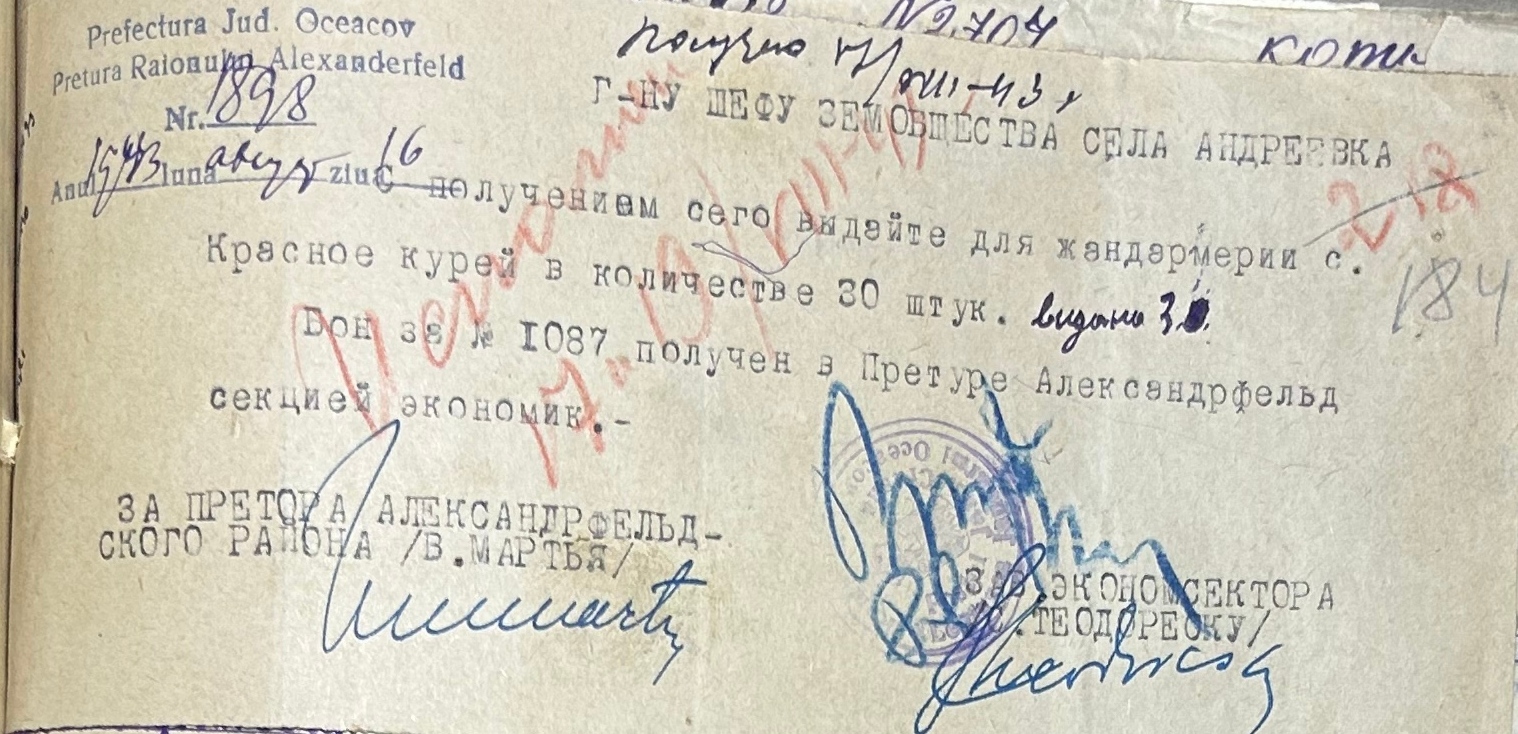 №2704
Prefectura Jud. Oceacov
Pretura Raionului Alexanderfeld
Nr. 1898
Anul 1943 luna август ziua 16
получено 17/VIII-43 г
Г-НУ ШЕФУ ЗЕМОБЩЕСТВА СЕЛА АНДРЕЕВКА
218
С получением сего выдайте для жандармерии с.
Красное курей в количестве 30 штук. видано 30.
184
Бон за № I087 получен в Претуре Александрфельд
секцией экономик.-
17. VIII-43
ЗА ПРЕТОРА АЛЕКСАНДРФЕЛЬД-
СКОГО РАЙОНА /В.МАРТЬЯ/
ЗАВ.ЭКОНОМСЕКТОРА
/С.ТЕОДОРЕСКУ/